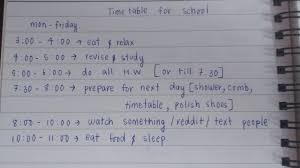 Time table for school
mon - friday
3:00 - 4:00 → eat & relax
4:00 - 5:00 → revise & study
5:00 - 6:00 → do all H.W [or till 7.30]
7:30 - 8:00 → prepare for next day [shower, comb,
timetable, polish shoes]
8:00 - 10:00 → watch something / reddit / text people
10:00 - 11:00 → eat food & sleep